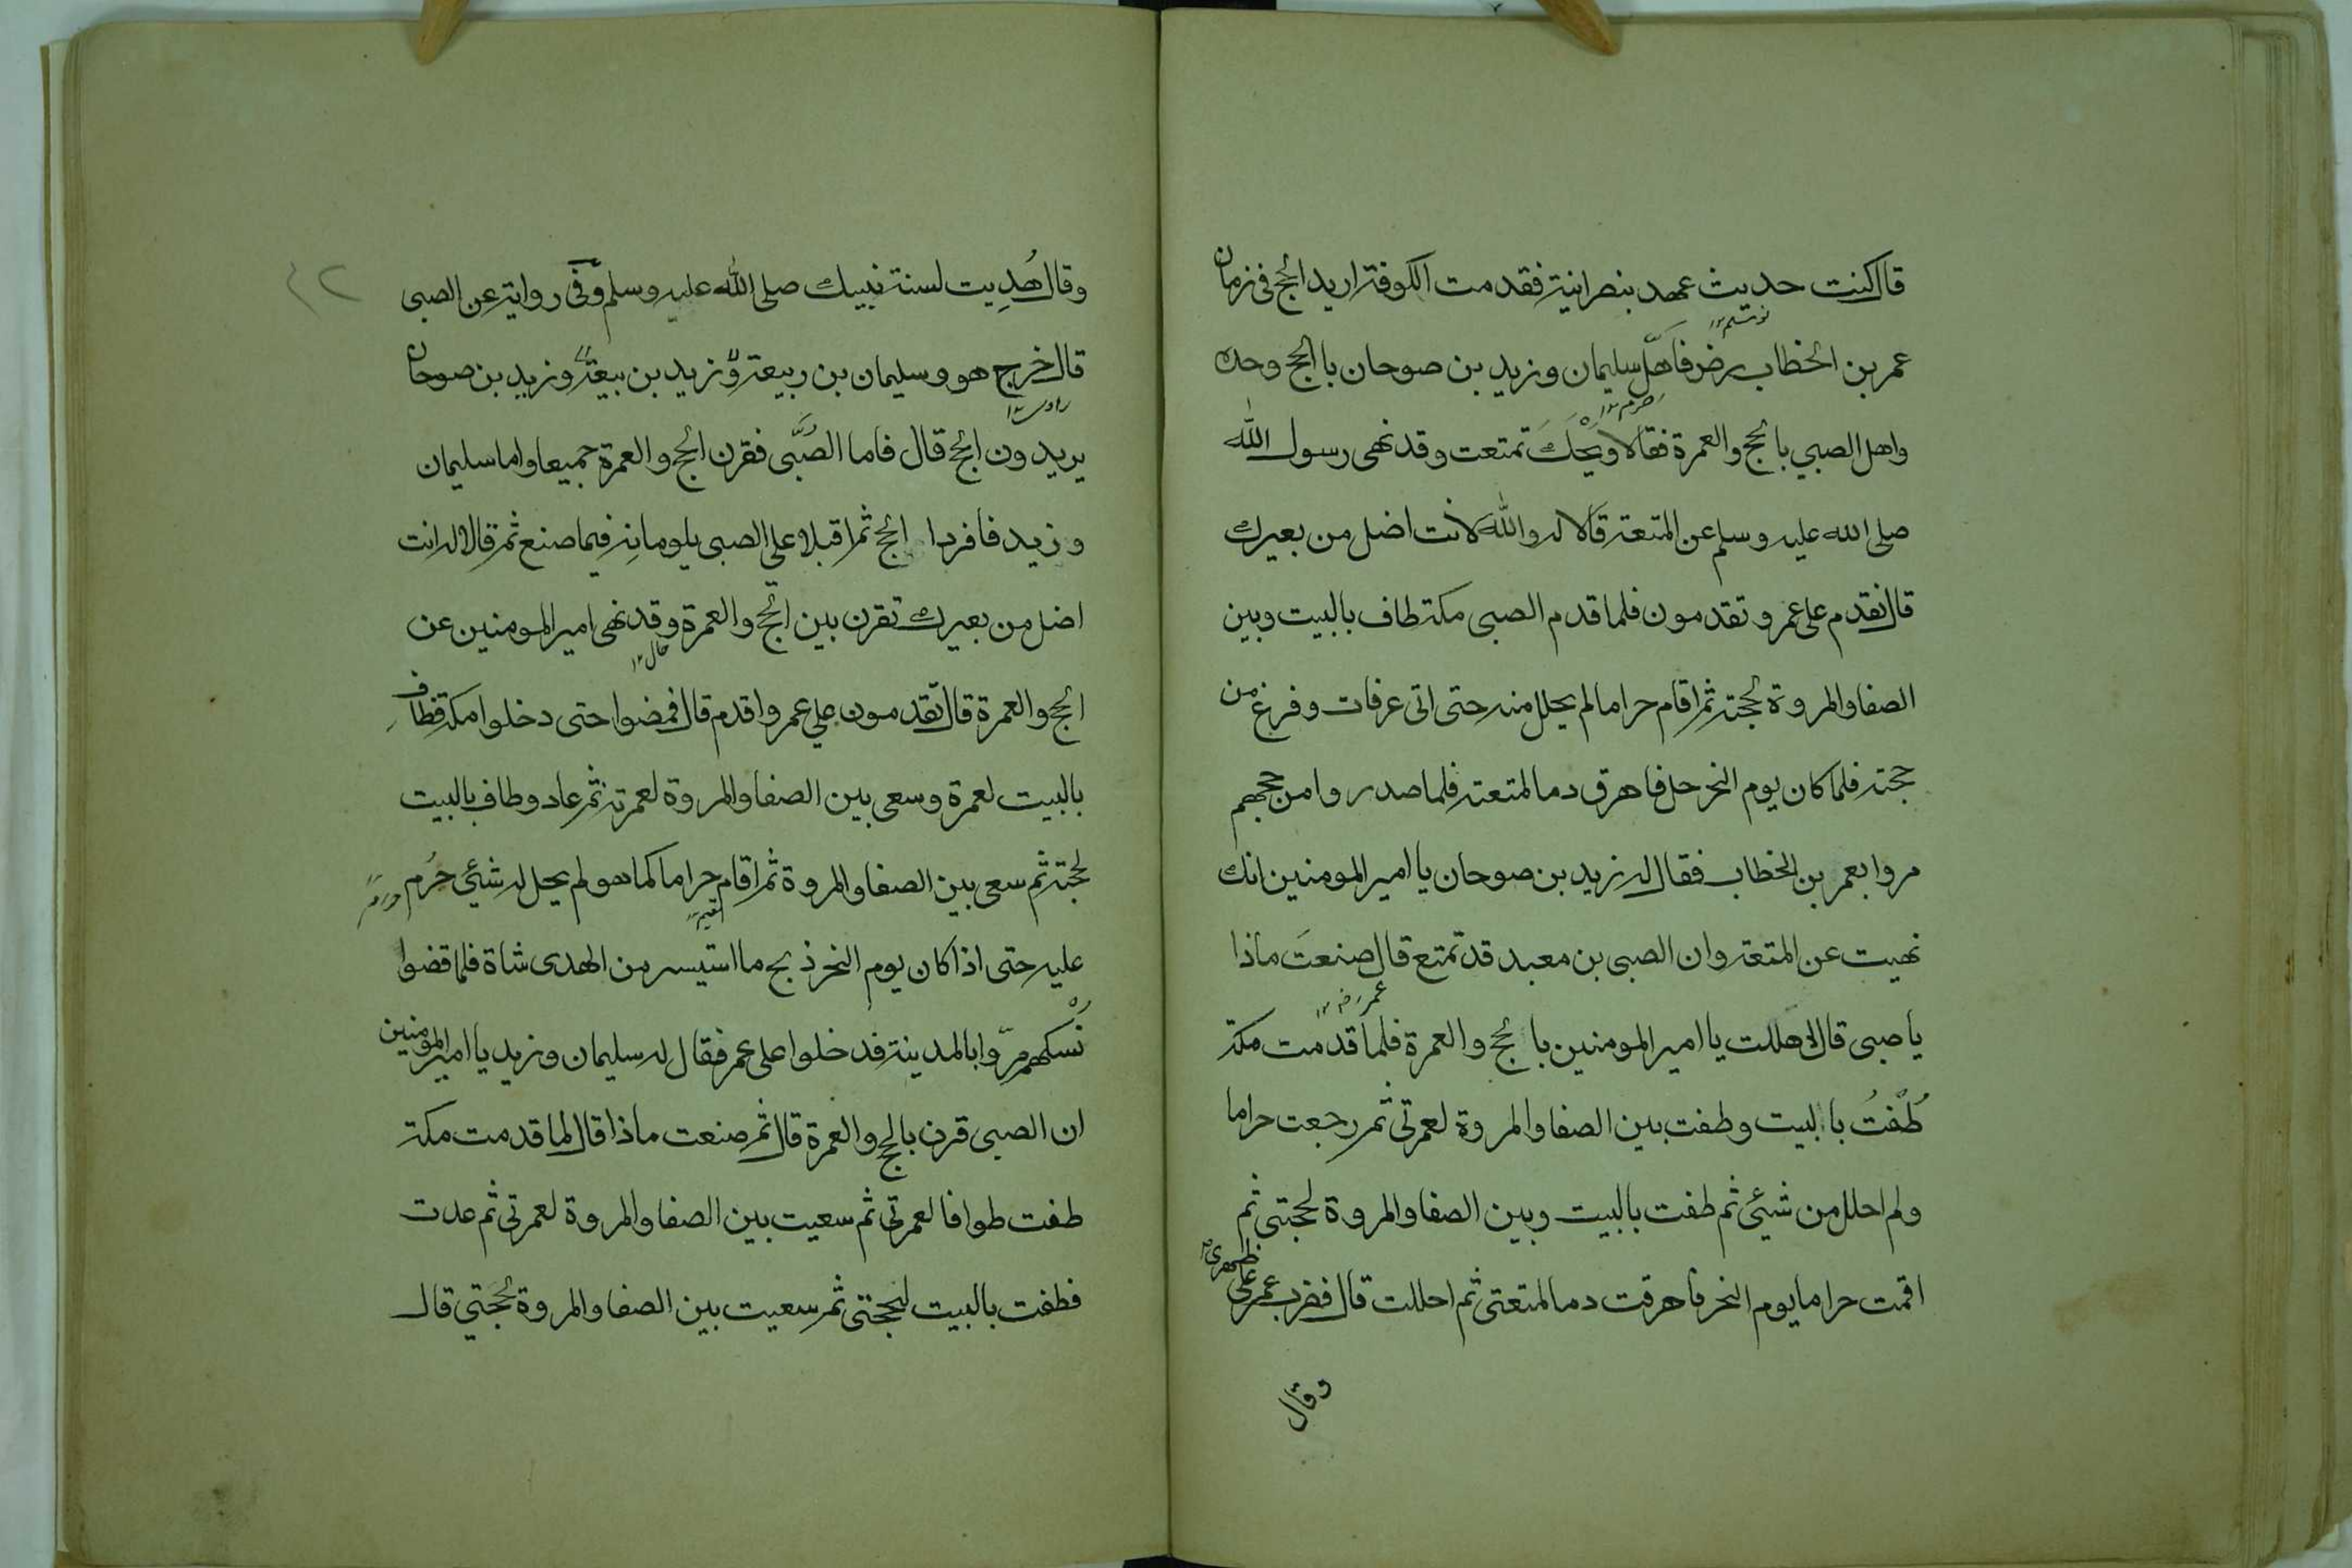 قال كنت حديث عهد بنصرانية فقدمت الكوفة اريد الحج فى زمان
عمر بن الخطاب رض فاهلّ سليمان وزيد بن صوحان با الحج وحده
واهل الصبي بالحج والعمرة فقالا ويْحَكَ تمتعت وقد نهى رسول الله
صلى الله عليه وسلم عن المتعة قالا له والله لانت اضل من بعيرك
قال نقدم على عمر وتقدمون فلما قدم الصبى مكة طاف بالبيت وبين
الصفا والمروة لحجته ثم اقام حراما لم يحلل منه حتى اتى عرفات وفرغ من
حجته فلما كان يوم النحر حل فاهرق دما لمتعته فلما صدروا من حجهم
مروا بعمر بن الخطاب فقال له زيد بن صوحان يا امير المومنين انك
نهيت عن المتعة وان الصبى بن معبد قد تمتع قال صنعتَ ماذا
عمر رض ١٢
يا صبى قال اهللت يا امير المومنين بالحج والعمرة فلما قدمت مكة
طُفْتُ بالبيت وطفت بين الصفا والمروة لعمرتى ثم رجعت حراما
ولم احلل من شيئ ثم طفت بالبيت وبين الصفا والمروة لحجتى ثم
اقمت حراما يوم النحر فاهرقت دما لمتعتى ثم احللت قال فضرب عمر على ظهرى
وقال
٤٢
وقال هُدِيت لسنة نبيك صلى الله عليه وسلم وفى رواية عن الصبى
قال خرج هو وسليمان بن ربيعة وزيد بن بيعة وزيد بن صوحان
يريدون الحج قال فاما الصُبَّى فقرن الحج والعمرة جميعا واما سليمان
وزيد فافردا الحج ثم اقبلا على الصبى يلومانه فيما صنع ثم قالا له انت
اضل من بعيرك تقرن بين الحج والعمرة وقد نهى امير المومنين عن
قال ١٢
الحج والعمرة قال تقدمون علي عمر واقدم قال فمضوا حتى دخلوا مكة فطاف
بالبيت لعمرة وسعى بين الصفا والمروة لعمرته ثم عاد وطاف بالبيت
لحجته ثم سعى بين الصفا والمروة ثم اقام حراما كما هو لم يحل له شيئ حُرم
عليه حتى اذا كان يوم النحر ذبح ما استيسر من الهدى شاة فلما قضوا
نُسكهم مرّوا بالمدينة فدخلوا على عمر فقال له سليمان وزيد يا امير المومنين
ان الصبى قرن بالحج والعمرة قال ثم صنعت ماذا قال لما قدمت مكة
طفت طوافا لعمرتى ثم سعيت بين الصفا والمروة لعمرتى ثم عدت
فطفت بالبيت لحجتى ثم سعيت بين الصفا والمروة لحجتي قال